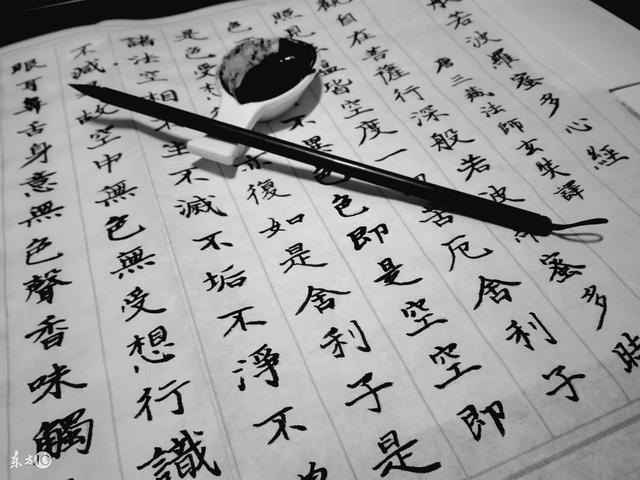 般若波羅蜜多心經
唐三藏法師玄奘譯
觀自在菩薩行深般若波蜜多時
照見蘊皆空度一苦厄舍利子
色不異色色即是空空即
是色受想亦復如是舍利子是
諸法空相不生不滅不垢不淨不
不減故空中無色無受想行識
眼耳鼻舌身意無色聲香味觸
东方IC